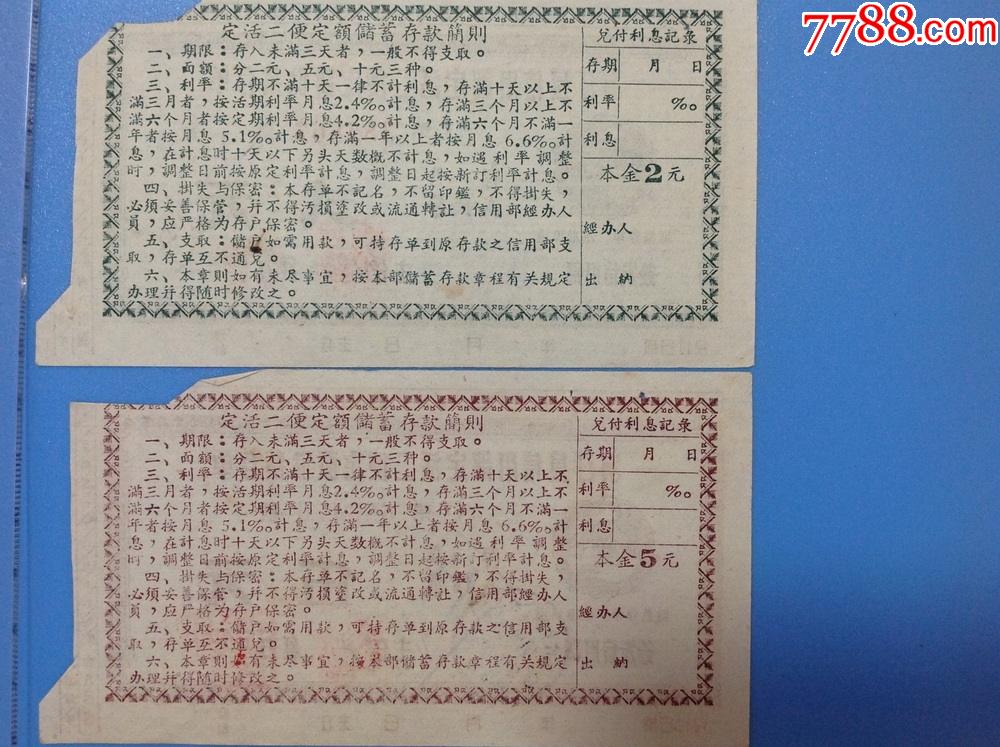 7788.com
定活二便定額儲蓄存款簡則
一、期限：存入未滿三天者，一般不得支取。
二、面額：分二元、五元、十元三种。
三、利率：存期不滿十天一律不計利息，存滿十天以上不
滿三月者，按活期利率月息2.4‰計息，存滿三个月以上不
滿六个月者按定期利率月息4.2‰計息，存滿六个月不滿一
年者按月息5.1‰計息，存滿一年以上者按月息6.6‰計
息，在計息时十天以下另头天数概不計息，如遇利率調整
时，調整日前按原定利率計息，調整日起按新訂利率計息。
四、掛失与保密：本存單不記名，不留印鑑，不得掛失，
必須妥善保管，幷不得汚損塗改或流通轉訨，信用部經办人
員，应严格为存户保密。
五、支取：儲户如需用款，可持存单到原存款之信用部支
取，存单互不通兌。
六、本章則如有未尽事宜，按本部儲蓄存款章程有关規定
办理幷得随时修改之。
兌付利息記彔
存期 月 日
利率 ‰
利息
本金2元
經办人
出 納
定活二便定額儲蓄存款簡則
一、期限：存入未滿三天者，一般不得支取。
二、面額：分二元、五元、十元三种。
三、利率：存期不滿十天一律不計利息，存滿十天以上不
滿三月者，按活期利率月息2.4‰計息，存滿三个月以上不
滿六个月者按定期利率月息4.2‰計息，存滿六个月不滿一
年者按月息5.1‰計息，存滿一年以上者按月息6.6‰計
息，在計息时十天以下另头天数概不計息，如遇利率調整
时，調整日前按原定利率計息，調整日起按新訂利率計息。
四、掛失与保密：本存单不記名，不留印鑑，不得掛失，
必須妥善保管，幷不得汚損塗改或流通轉訨，信用部經办人
員，应严格为存户保密。
五、支取：儲户如需用款，可持存单到原存款之信用部支
取，存单互不通兌。
六、本章則如有未尽事宜，按本部儲蓄存款章程有关規定
办理幷得随时修改之。
兌付利息記彔
存期 月 日
利率 ‰
利息
本金5元
經办人
出 納